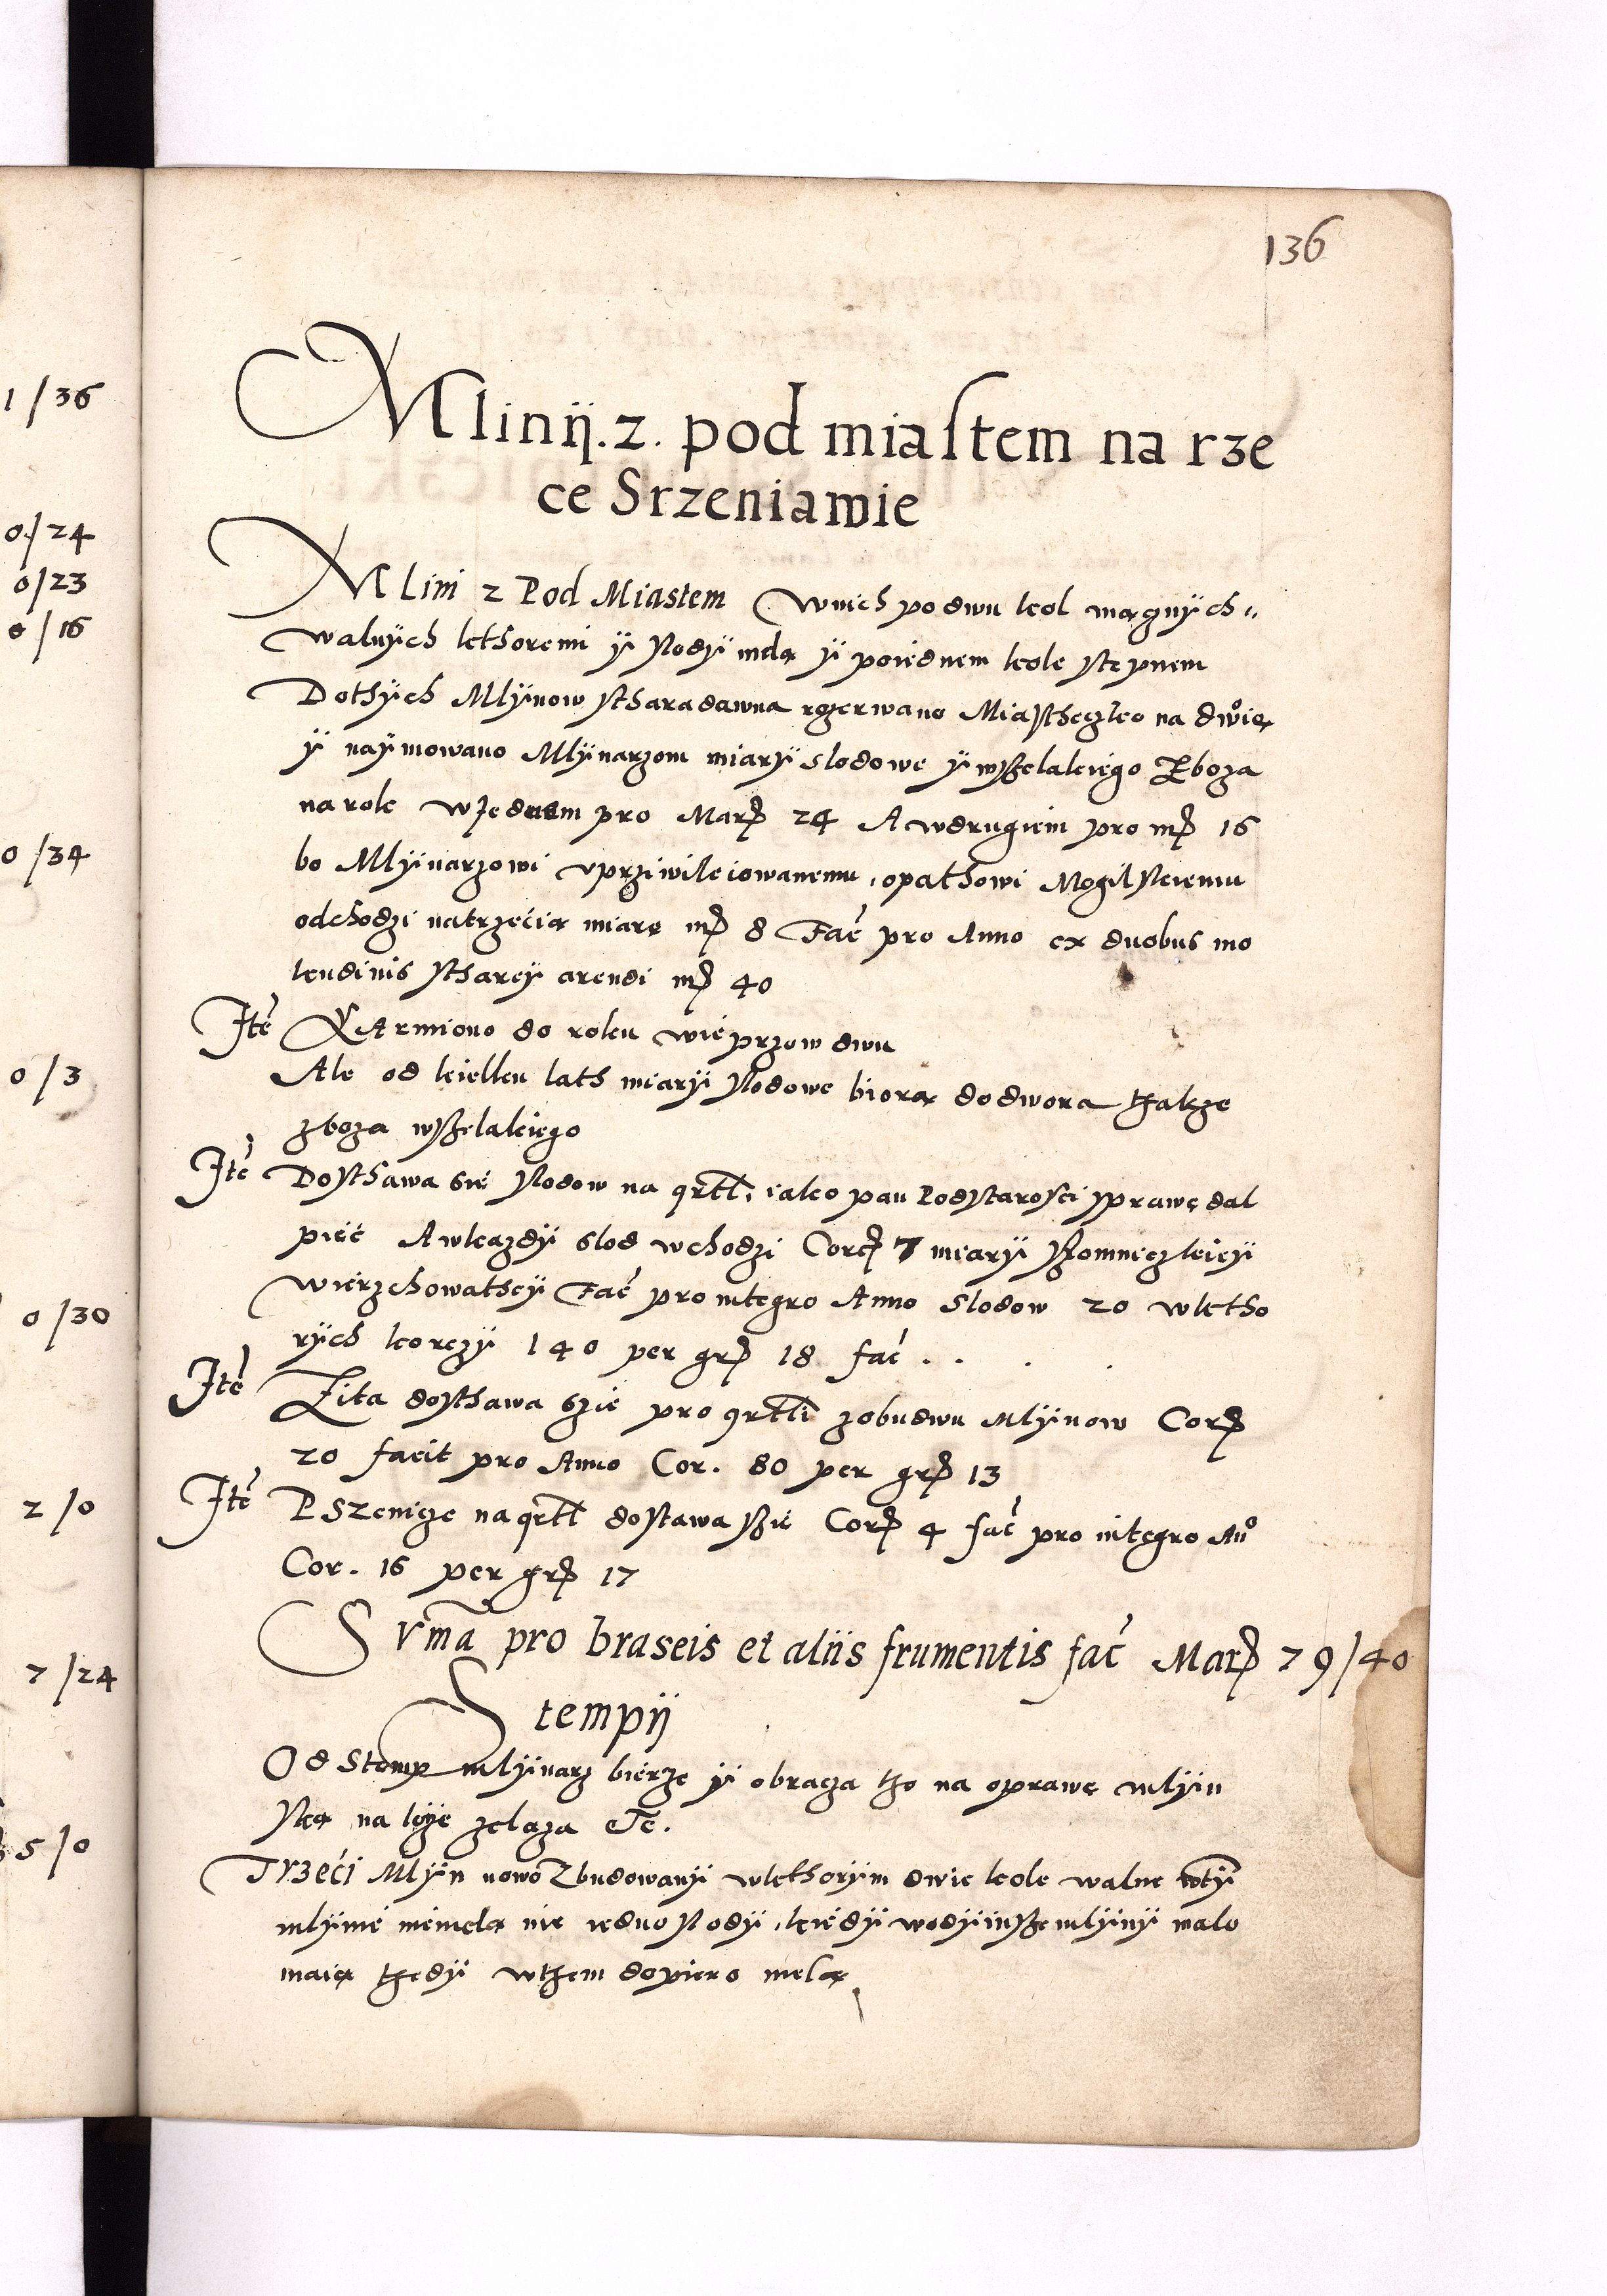 136
1/36
0/24
0/23
0/16
0/34
0/3
0/30
2/0
7/24
5/0
Mlinÿ. 2. pod miastem na rze
ce Srzeniawie
Mlini 2 Pod Miastem Wnich po dwu kol mącznÿch
walnÿch kthoremi ÿ słodÿ mdą ÿ poiednem kole stępnem
Dothÿch Mlÿnow stharadawna rozerwano Miastheczko na dwoie
ÿ naÿmowano Mlÿnarzom miarÿ slodowe ÿ wszelakiego Zboza
na role w Jednem pro Marc 24 A wdrugiem pro mc 16
bo Mlÿnarzowi vprziwileiowanemu, opathowi Mogilskiemu
odchodzi natrzecią miare mc 8 Fac pro Anno ex duobus mo
lendinis sthareÿ arendi mc 40
Ite Karmiono do roku wieprzow dwu
Ale od kielku lath miarÿ slodowe biorą do dwora thakze
zboza wszelakiego
Ite Dosthawa sie slodow na qrtl, iako pan Podstarosci sprawę dal
pięć A wkazdÿ slod wchodzi Corc 7 miarÿ Skomnieczkieÿ
wierzchowatheÿ Fac pro integro Anno Slodow 20 wktho
rÿch korczÿ 140 per grc 18 fac . . . .
Ite Zita dosthawa szie pro qrtli zobudwu Mlÿnow Corc
20 facit pro Anno Cor. 80 per grc 13
Ite Pszenicze na qrtl dostawa szie Corc 4 fac pro integro Ano
Cor. 16 per grc 17
Svma pro braseis et aliis frumentis fac Marc 79/40
Stempÿ
Od Stomp mlÿnarz bierze ÿ obracza tho na oprawę mlÿn
ską na zelaza etc.
Trzeci Mlÿn nowo Zbudowanÿ wkthorÿm dwie kole walne wtÿ
mlÿnie miewelą nie iedno slodÿ, kiedÿ wodÿ insze mlÿnÿ malo
maią thedÿ wthem dopiero melą